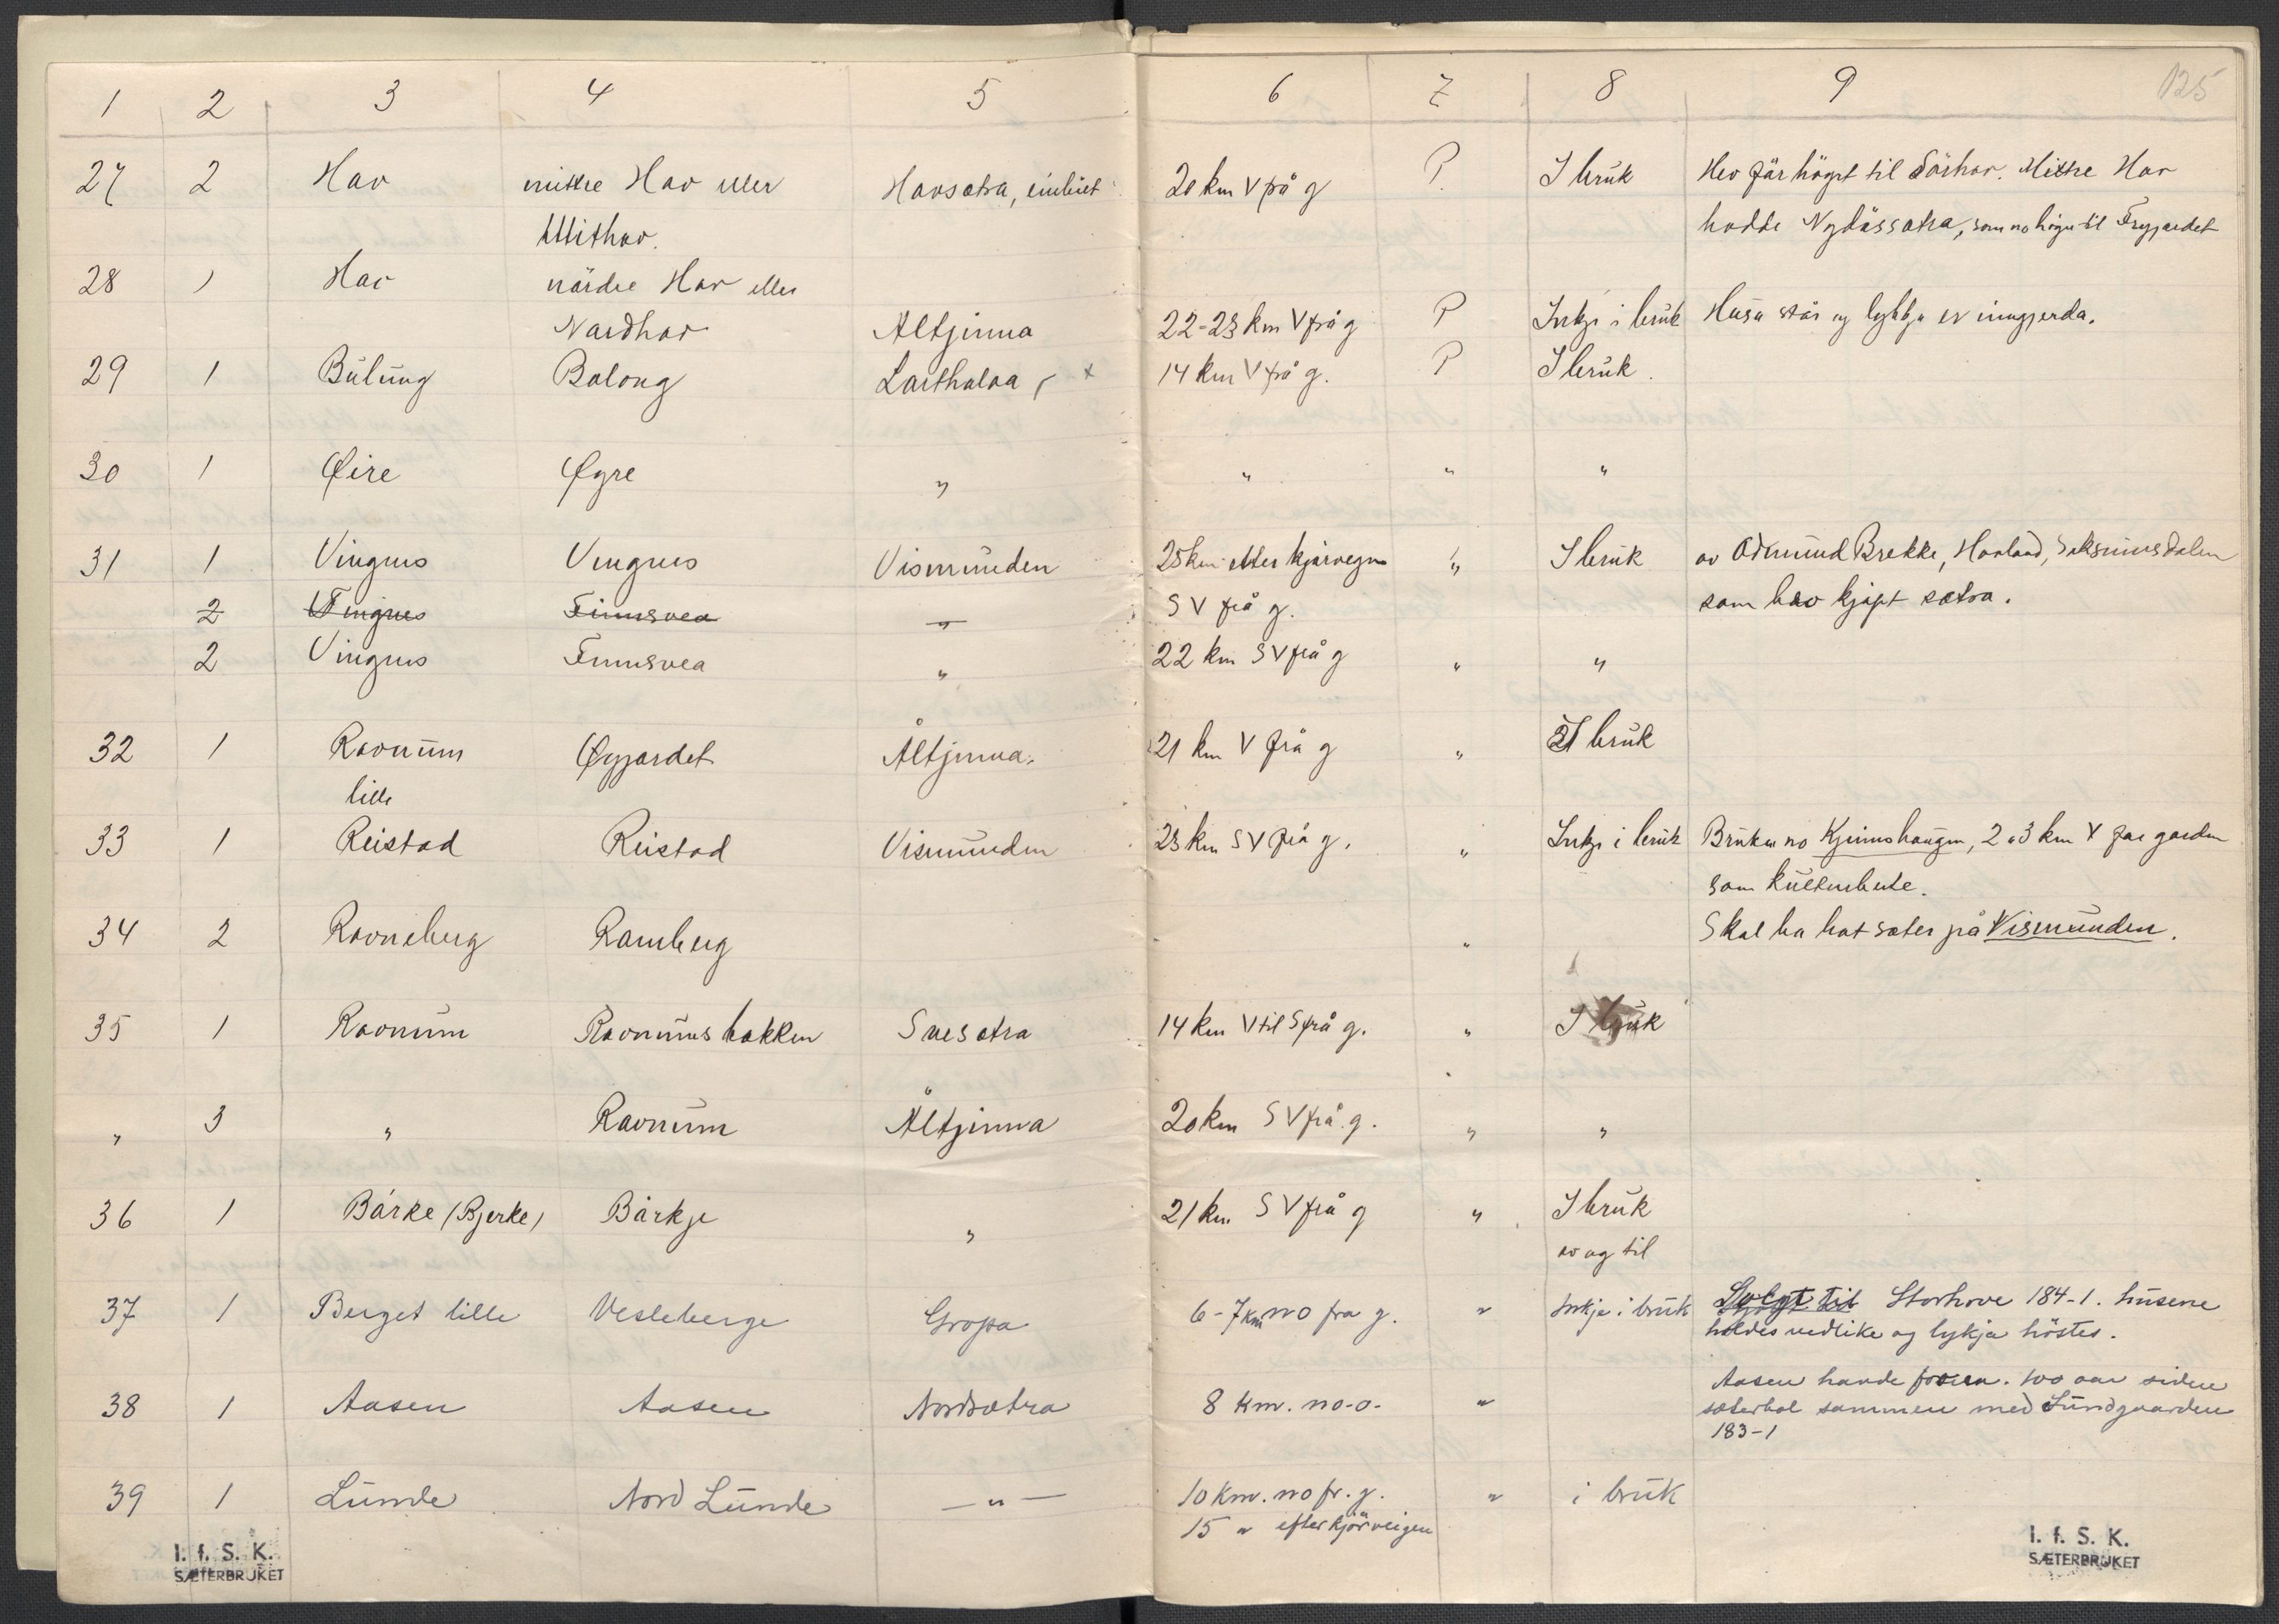 1 2 3 4 5 6 7 8 9 125
27 2 Hov mittre Hov eller Hovsætra, einbuet 20 km V frå g P. I bruk Hev før höyrt til Sörhov. Mittre Hov
Mithov. hadde Nylássætra, som no höyrer til Frygardet
28 1 Hov nördre Hov eller
Nordhov Åltjinna 22-23 km V frå g P Inkje i bruk Husa står og lykkja er inngjerda.
29 1 Bulung Bolong Lasthølaa x 14 km V frå g. P I bruk.
30 1 Øire Øyre " " " "
31 1 Vingnes Vingnes Vismunden 25 km etter kjørvegen " I bruk av Odmund Brekke, Hovland, Saksumsdalen
2 Vingnes Finnsvea " S V frå g. som hev kjøpt sætra.
2 Vingnes Finnsvea " 22 km SV frå g " "
32 1 Rovnum Øygardet Åltjinna. 21 km V frå g " I bruk
lille
33 1 Reistad Reistad Vismunden 23 km SV frå g. " Inkje i bruk Bruker no Kjeimshaugen, 2 a 3 km V for garden
som kulturbeite.
34 2 Rovneberg Ramberg " Skal ha hat sæter på Vismunden.
35 1 Rovnum Rovnumsbakken Snesætra 14 km V til S frå g. " I bruk
" 3 " Rovnum Åltjinna 20 km SV frå g. " "
36 1 Bårke (Bjerke) Bårkje " 21 km SV frå g " I bruk
av og til
37 1 Berget lille Vesleberge Gropa 6-7 km no fra g. " Inkje i bruk Solgt til Storhove 184-1. husene
holdes vedlike og lykja höstes.
38 1 Aasen Aasen Nordsætra 8 km. no-o- " Aasen havde for ca. 100 aar siden
sæterbol sammen med Lundgaarden
183-1
39 1 Lunde Nord Lunde —"— 10 km. no fr. g. " i bruk
15 " efter kjörveigen
I. f. S. K. I. f. S. K.
SÆTERBRUKET SÆTERBRUKET